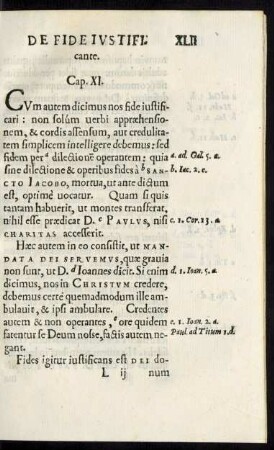 DE FIDE IVSTIFI. XLII
cante.
Cap. XI.
CVm autem dicimus nos fide iustifi-
cari: non solùm uerbi appræhensio-
nem, & cordis assensum, aut credulita-
tem simplicem intelligere debemus: sed
fidem per ᵃ dilectionē operantem: quia a. ad. Gal. 5. a.
sine dilectione & operibus fides à ᵇ SAN- b. Iac. 2. c.
CTO IACOBO, mortua, ut ante dictum
est, optimè uocatur. Quam si quis
tantam habuerit, ut montes transferat,
nihil esse prædicat D. ᶜ PAVLVS, nisi c. 1. Cor. 13. a.
CHARITAS accesserit.
Hæc autem in eo consistit, ut MAN-
DATA DEI SERVEMVS, quæ grauia
non sunt, ut D. ᵈ Ioannes dicit. Si enim d. 1. Ioan. 5. a.
dicimus, nos in CHRISTVM credere,
debemus certè quemadmodum ille am-
bulauit, & ipsi ambulare. Credentes
autem & non operantes, ᵉ ore quidem e. 1. Ioan. 2. a.
fatentur se Deum nosse, factis autem ne- Paul. ad Titum 1. d.
gant.
Fides igitur iustificans est DEI do-
L ij num